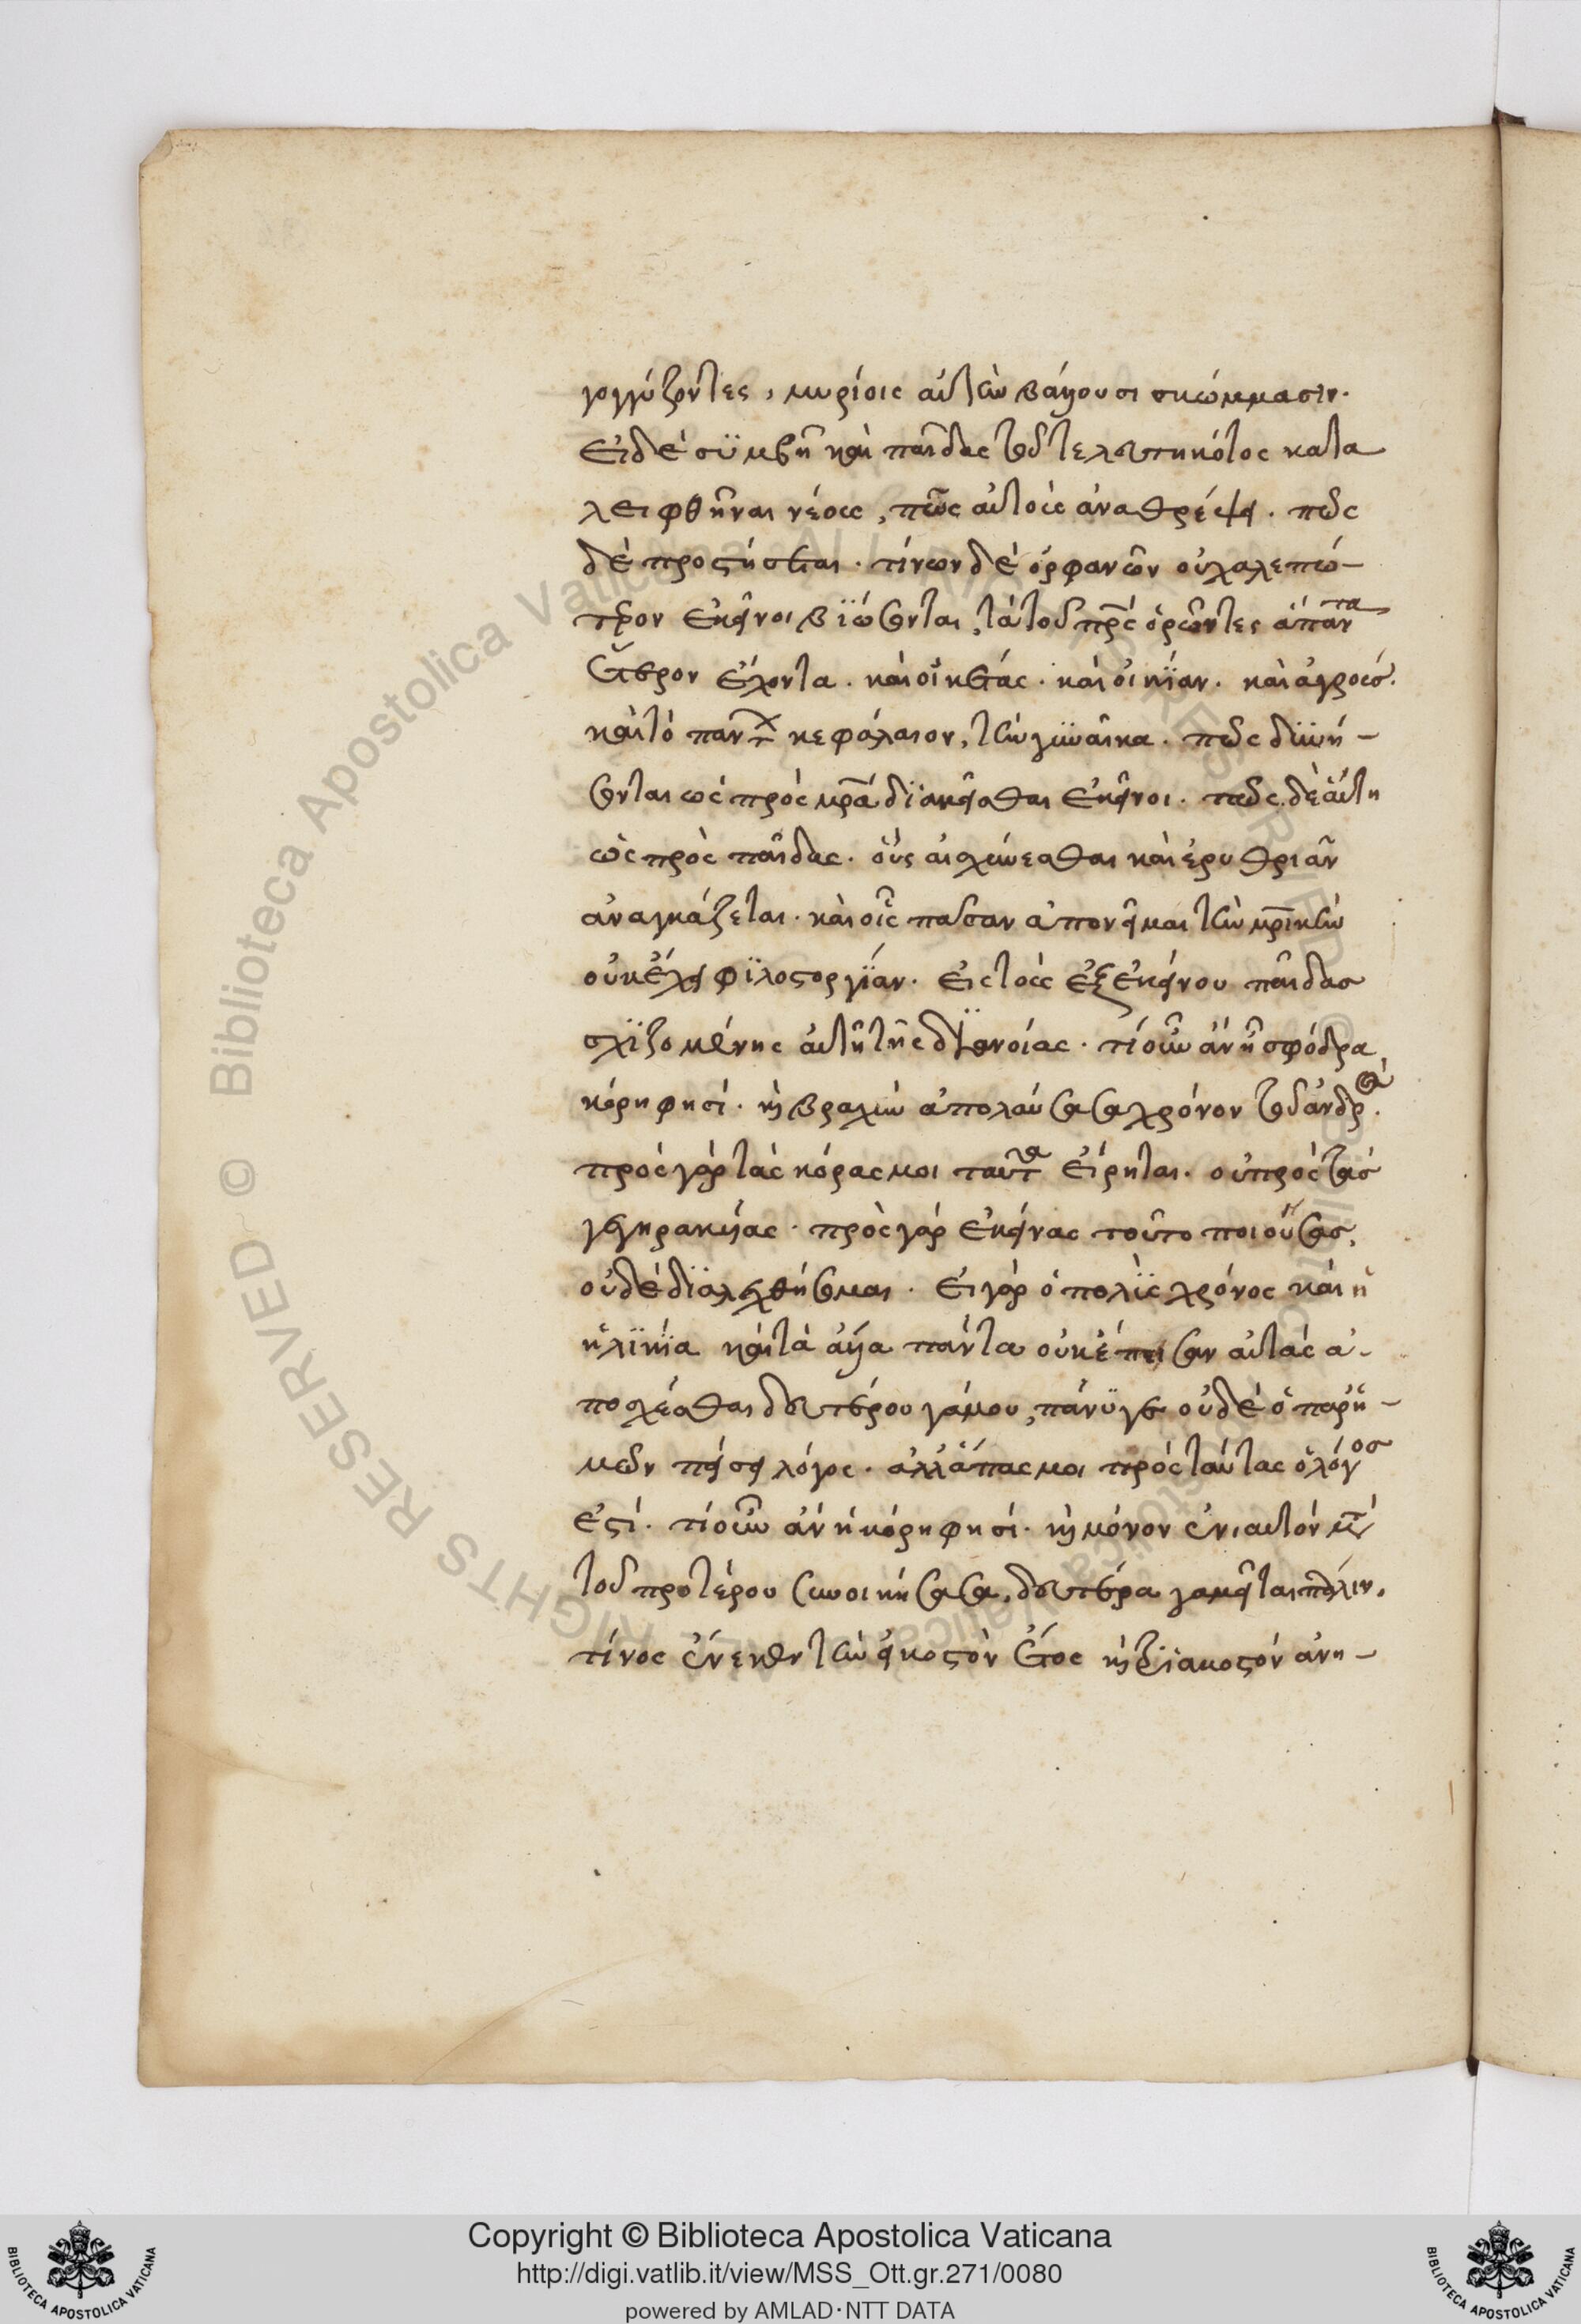 γογγύζοντες, μυρίοις αὐτὴν βάλλουσι σκώμμασιν.
εἰ δὲ συμβῆ καὶ παῖδας τοῦ τελευτηκότος κατα
λειφθῆναι νέους, πῶς αὐτοὺς ἀναθρέψει. πῶς
δὲ προστήσεται. τίνων δὲ ὀρφανῶν οὐ χαλεπώ-
τερον ἐκεῖνοι βιώσονται, τὰ τοῦ πρς ὁρῶντες ἅπαντα
ἕτερον ἔχοντα. καὶ οἰκέτας. καὶ οἰκίαν. καὶ ἀγρούς.
καὶ τὸ πάντων κεφάλαιον, τὴν γυναῖκα. πῶς δυνή-
σονται ὡς πρὸς μρα διακεῖσθαι ἐκεῖνοι. πῶς δὲ αὕτη
ὡς πρὸς παῖδας. οὓς αἰσχύνεσθαι καὶ ἐρυθριᾶν
ἀναγκάζεται. καὶ οἷς πᾶσαν ἀπονεῖμαι τὴν μρικὴν
οὐκ ἔχει φιλοστοργίαν. εἰς τοὺς ἐξ ἐκείνου παῖδας
σχιζομένης αὐτῇ τῆς διανοίας. τί οὖν ἂν ᾖ σφόδρα
κόρη φησί. καὶ βραχὺν ἀπολαύσασα χρόνον τοῦ ἀνδρός.
πρὸς γὰρ τὰς κόρας μοι ταῦτα εἴρηται. οὐ πρὸς τὰς
γεγηρακυίας. πρὸς γὰρ ἐκείνας τοῦτο ποιούσας,
οὐδὲ διαλεχθήσομαι. εἰ γὰρ ὁ πολὺς χρόνος καὶ ἡ
ἡλικία καὶ τὰ ἄλλα πάντα οὐκ ἔπεισαν αὐτὰς ἀ-
ποσχέσθαι δευτέρου γάμου, πάνυ γε οὐδὲ ὁ παρ' ἡ-
μῶν πείσει λόγος. ἀλλ' ἅπας μοι πρὸς ταύτας ὁ λόγος
ἐστί. τί οὖν ἂν ἡ κόρη φησί. καὶ μόνον ἐνιαυτὸν μετὰ
τοῦ προτέρου συνοικήσασα, δευτέρα γαμεῖται πάλιν.
τίνος ἕνεκεν τὴν εἰκοστὸν ἔτος καὶ τριακοστὸν ἀνη-
Copyright © Biblioteca Apostolica Vaticana
http://digi.vatlib.it/view/MSS_Ott.gr.271/0080
powered by AMLAD·NTT DATA